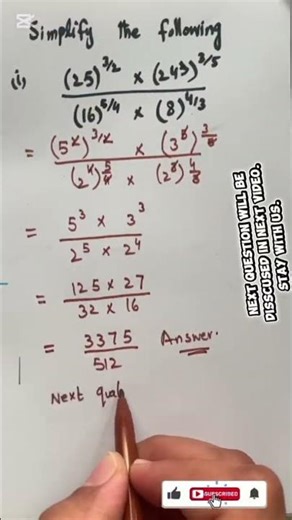 CapCut
Simplify the following
(i) (25)^{3/2} × (243)^{3/5}
(16)^{5/4} × (8)^{4/3}
= (5^2)^{3/2} × (3^5)^{3/5}
(2^4)^{5/4} × (2^3)^{4/3}
= 5^3 × 3^3
2^5 × 2^4
= 125 × 27
32 × 16
= 3375 Answer.
512
Next qu
NEXT QUESTION WILL BE
DISSCUSED IN NEXT VIDEO.
STAY WITH US.
SUBSCRIBED